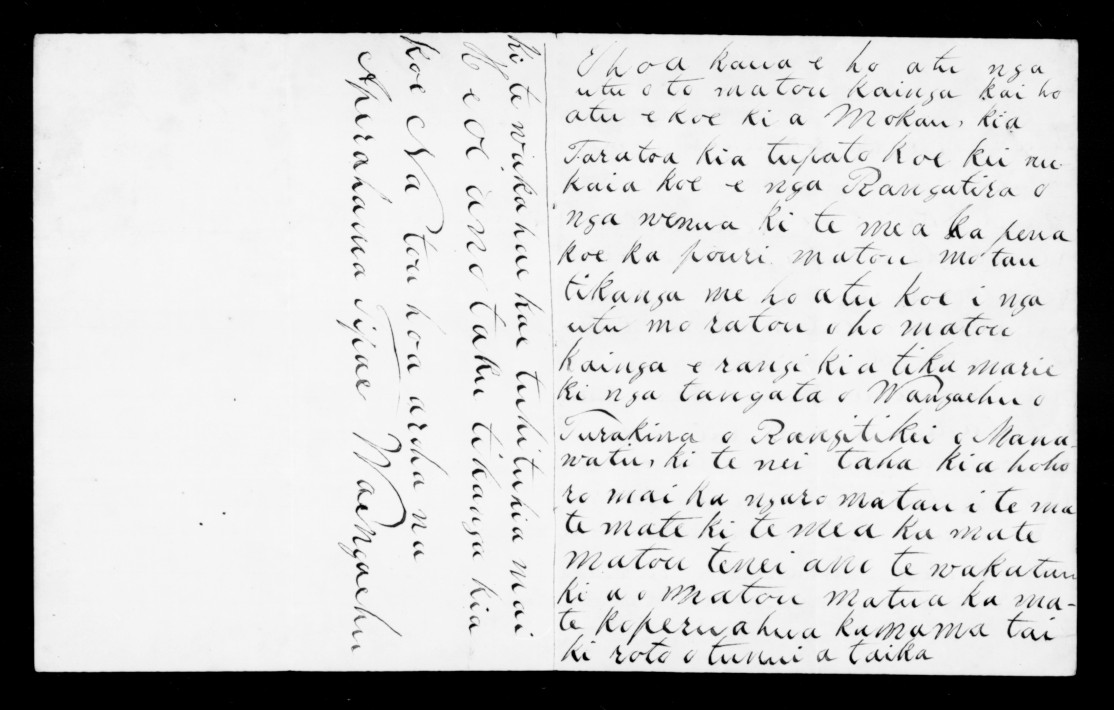 E hoa kaua e ho atu nga
utu o to matou kainga kai ho
atu e koe ki a Mokau, kia
Taratoa kia tupato koe kei mu
kaia koe e nga Rangatira o
nga wenua ki te mea ka pena
koe ka pouri matou mo tau
tikanga me ho atu koe i nga
utu mo ratou o ho matou
kainga e rangi kia tika marie
ki nga tangata o Wangaehu o
Turakina o Rangitikei o Mana
watu, ki te nei taha kia hoho
ro mai ka ngaro matau i te ma
te mate ki te mea ka mate
matou tenei ano te wakatau
ki a o matou matua ka ma-
te koperuahua kamama tai
ki roto o tunui a taika
ki te wakaheu kau tuhituhia mai
Heoi ano taku tikanga kia
koe Na tou hoa aroha na
Aperahama Tipae Waengaehu